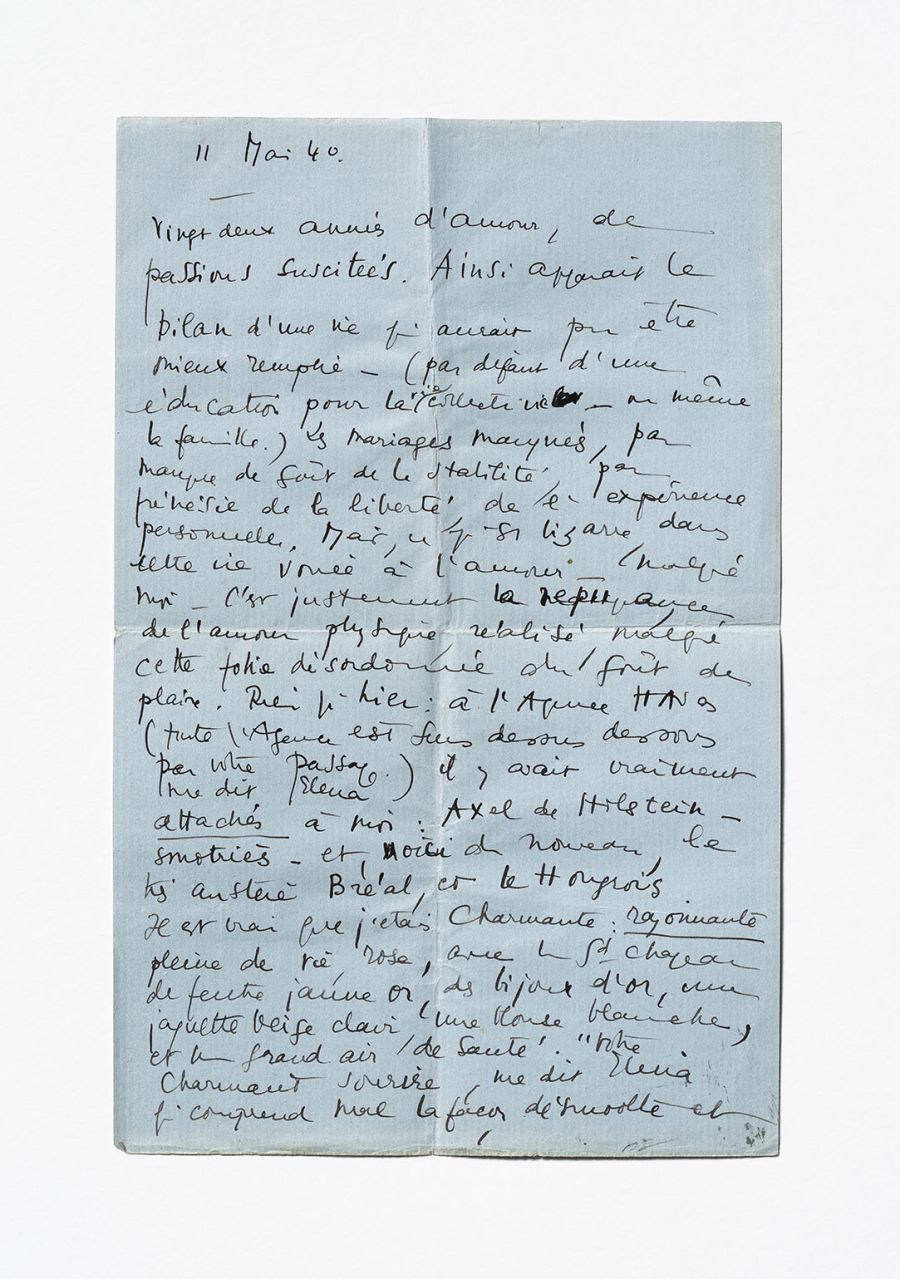 11 Mai 40.
Vingt deux années d'amour, de
passions suscitées. Ainsi apparait le
bilan d'une vie qi aurait pu être
mieux remplie – (par défaut d'une
éducation pour la vie collective – ou même
la famille.) Les mariages manqués, par
manque de goût de la stabilité, par
frénésie de la liberté de l' expérience
personnelle. Mais, ce qi est bizarre dans
cette vie vouée à l'amour – malgré
moi – C'est justement la répugnance
de l'amour physique réalisé malgré
cette folie désordonnée du goût de
plaire. Rien qi hier : à l'Agence HAvas
(toute l'Agence est sens dessus dessous
par votre passage.) il y avait vraiment
me dit Elena
attachés à moi : Axel de Holstein –
– et, voici du nouveau, le
très austère Bréal, et le Hongrois
Il est vrai que j'étais Charmante : rayonnante
pleine de vie, rose, avec un gd chapeau
de feutre jaune or, des bijoux d'or, une
jaquette beige clair, une blouse blanche,
et un grand air de santé. "Votre
Charmant sourire, me dit Elena
qi comprend mal la façon désinvolte et